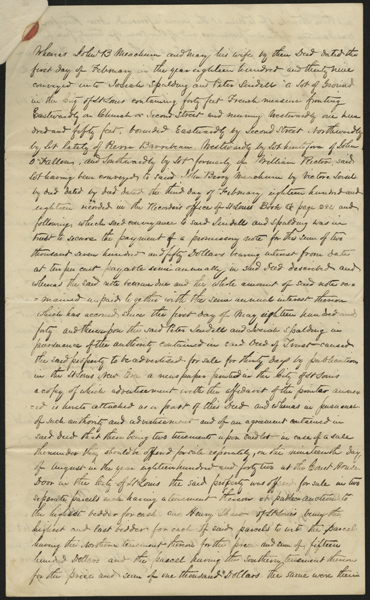 Whereas John B Meachum and Mary his wife by their Deed dated the
first day of February in the year eighteen hundred and thirty nine
conveyed unto Josiah Spalding and Peter Lindell a lot of Ground
in the city of St Louis containing forty feet French measure fronting
Eastwardly on Church or Second Street and running Westwardly one hun
dred and fifty feet, bounded Eastwardly by Second Street Northwardly
by lot lately of Pierre Westwardly by lot of John
O'Fallon, and Southwardly by lot formerly of William Rector, said
lot having been conveyed to said John Berry Meachum by
by deed dated the third day of February eighteen hundred and
eighteen recorded in the Recorders office of St Louis Book Q page and
following which said conveyance to said Lindell and Spalding was in
trust to secure the payment of a promissory note for the sum of two
thousand seven hundred and fifty Dollars bearing interest from date
at ten per cent payable semi annually in said Deed described and
whereas the said note became due and the whole amount of said note re
-mained unpaid together with the semi annual interest thereon
which has accrued since the first day of May eighteen hundred and
forty and whereupon the said Peter Lindell and Josiah Spalding in
pursuance of the authority contained in said Deed of Trust caused
the said property to be advertised for sale for thirty days by publication
in the St Louis New Era a newspaper printed in the City of St Louis
a copy of which advertisement with the affidavit of the printer annex
ed is hereto attached as a part of this Deed and whereas in pursuance
of such authority and advertisement and of an agreement contained in
said deed that there being two tenements upon said lot in case of a sale
thereunder they should be offered for sale separately, on the nineteenth day
of August in the year eighteen hundred and forty two at the Court House
door in the City of St Louis the said property was offered for sale in two
separate parcels each having a tenement thereon at public auction to
the highest bidder for cash one Henry Shaw of St Louis being the
highest and last bidder for each of said parcels to wit the parcel
having the Northern tenement thereon for the price and sum of fifteen
hundred Dollars and the parcel having the Southern tenement thereon
for the price and sum of one thousand Dollars the same were